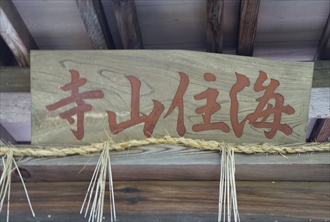 海住山寺